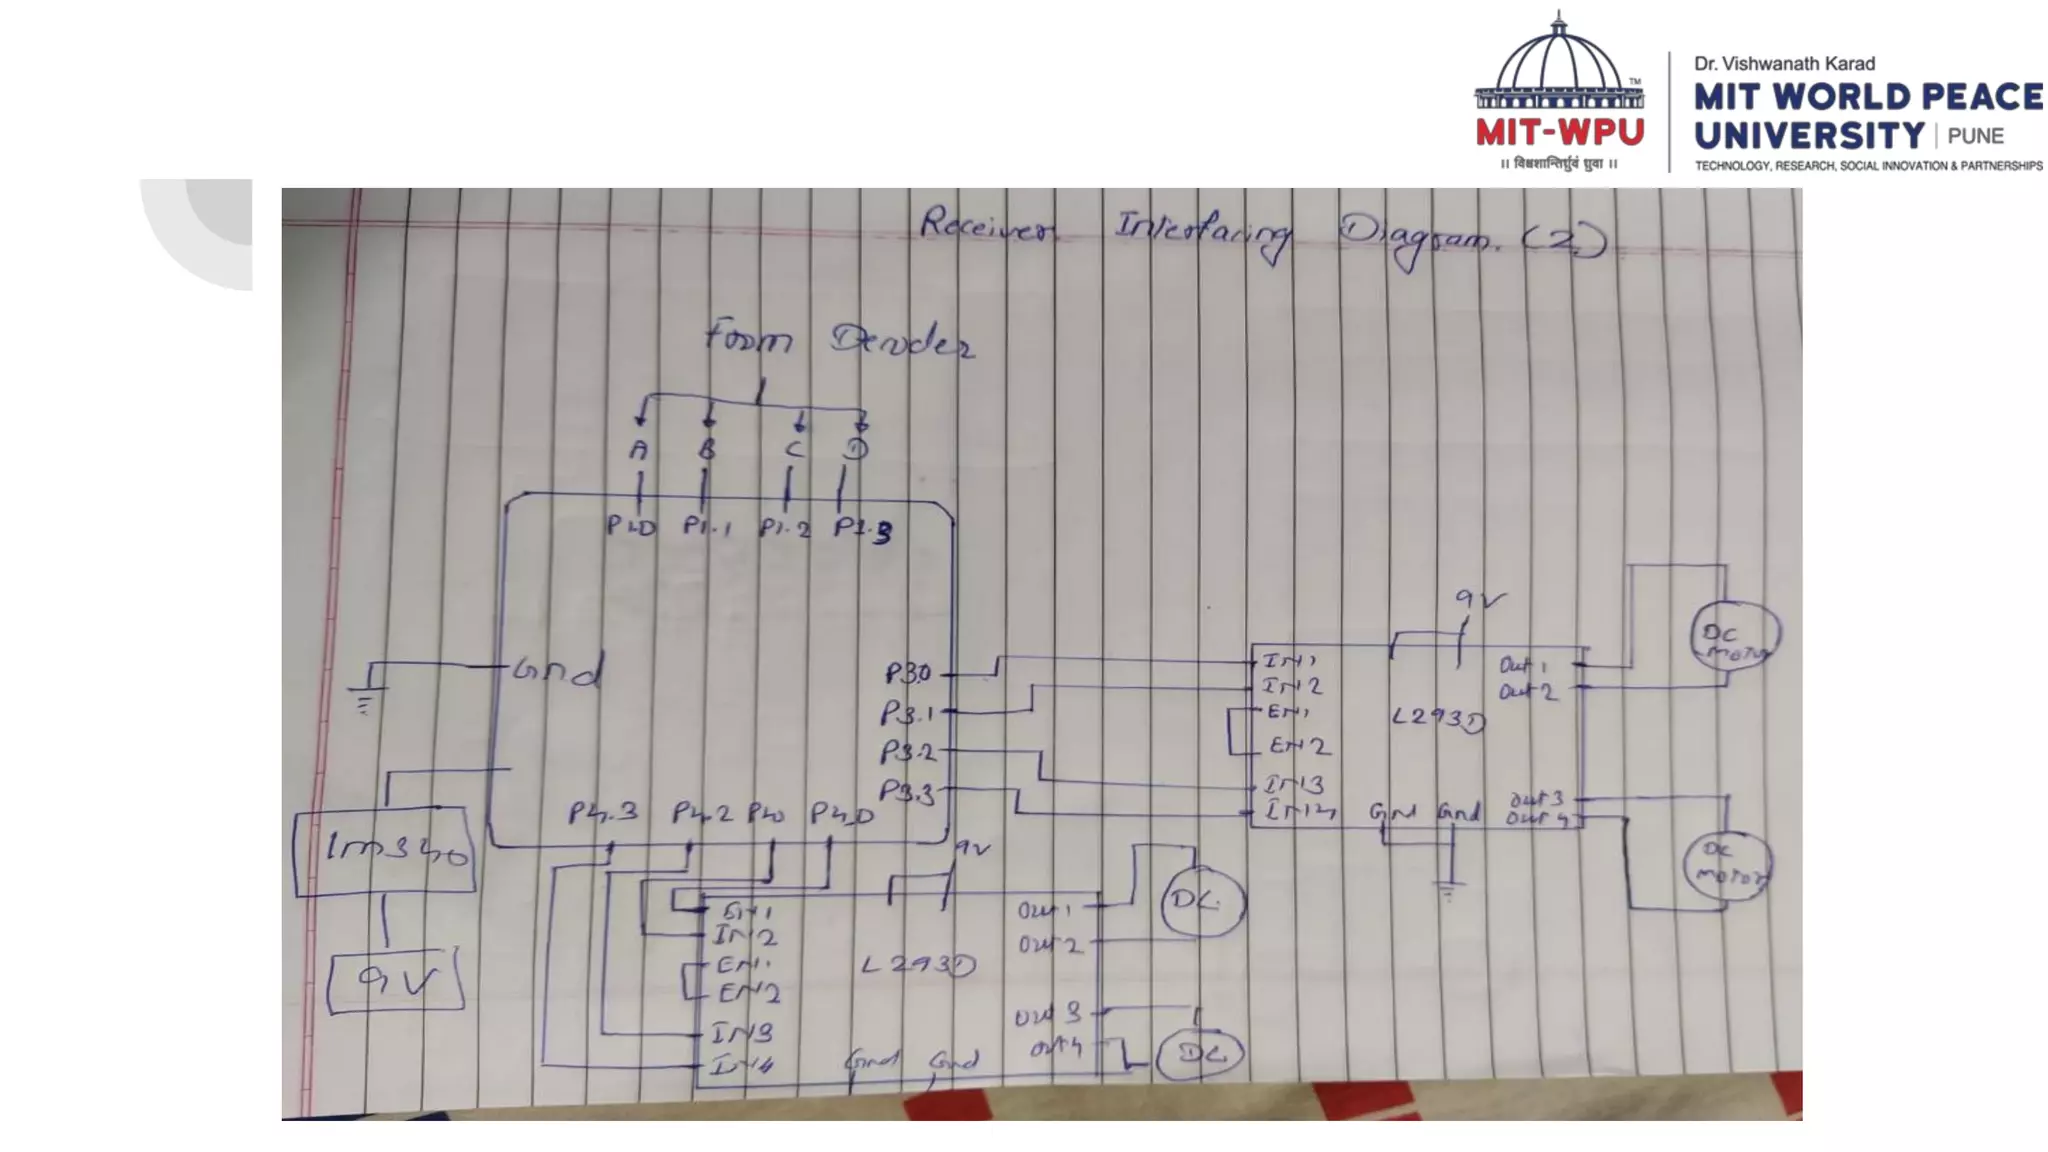 Dr. Vishwanath Karad
MIT WORLD PEACE
UNIVERSITY | PUNE
TECHNOLOGY, RESEARCH, SOCIAL INNOVATION & PARTNERSHIPS
TM
MIT-WPU
॥ विश्वशान्तिर्ध्रुवं ध्रुवा ॥
Receiver Interfacing Diagram. (2)
From Decoder
A B C D
P1.0 P1.1 P1.2 P1.3
Gnd
P3.0
P3.1
P3.2
P3.3
P4.3 P4.2 P4.0
lm340
9V
9V
IN1
IN2
EN1
EN2
IN3
IN4
L293D
Gnd Gnd
Out 1
Out 2
Out 3
Out 4
DC
MOTOR
DC
MOTOR
9V
IN2
EN1
EN2
IN3
IN4
L293D
Gnd Gnd
Out 1
Out 2
Out 3
Out 4
DC.
DC